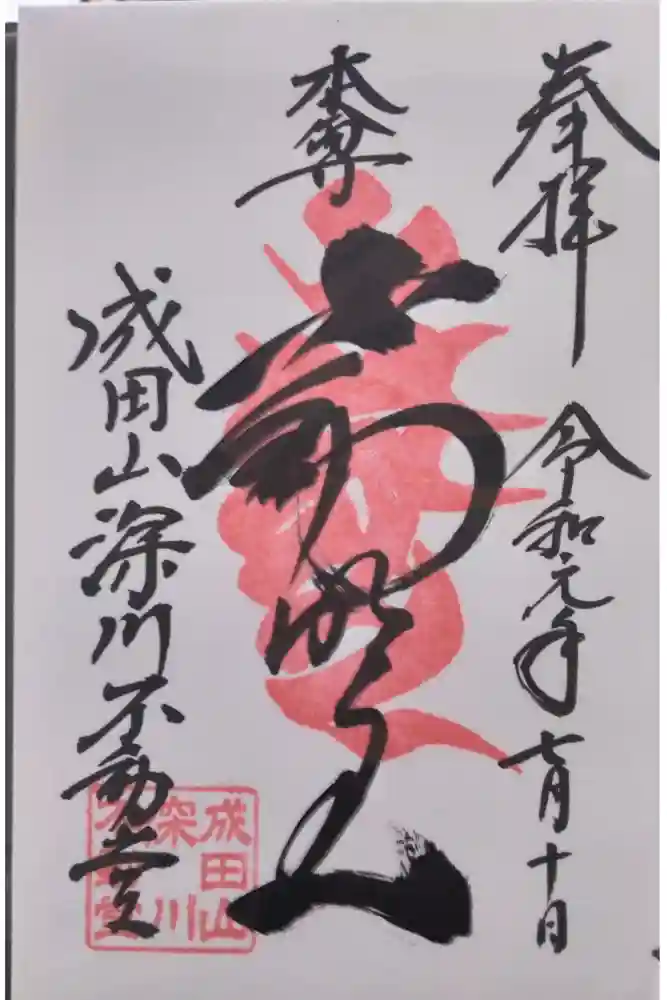 奉拝
令和元年七月十日
本尊
不動明王
成田山深川不動堂
成田山
深川
不動堂